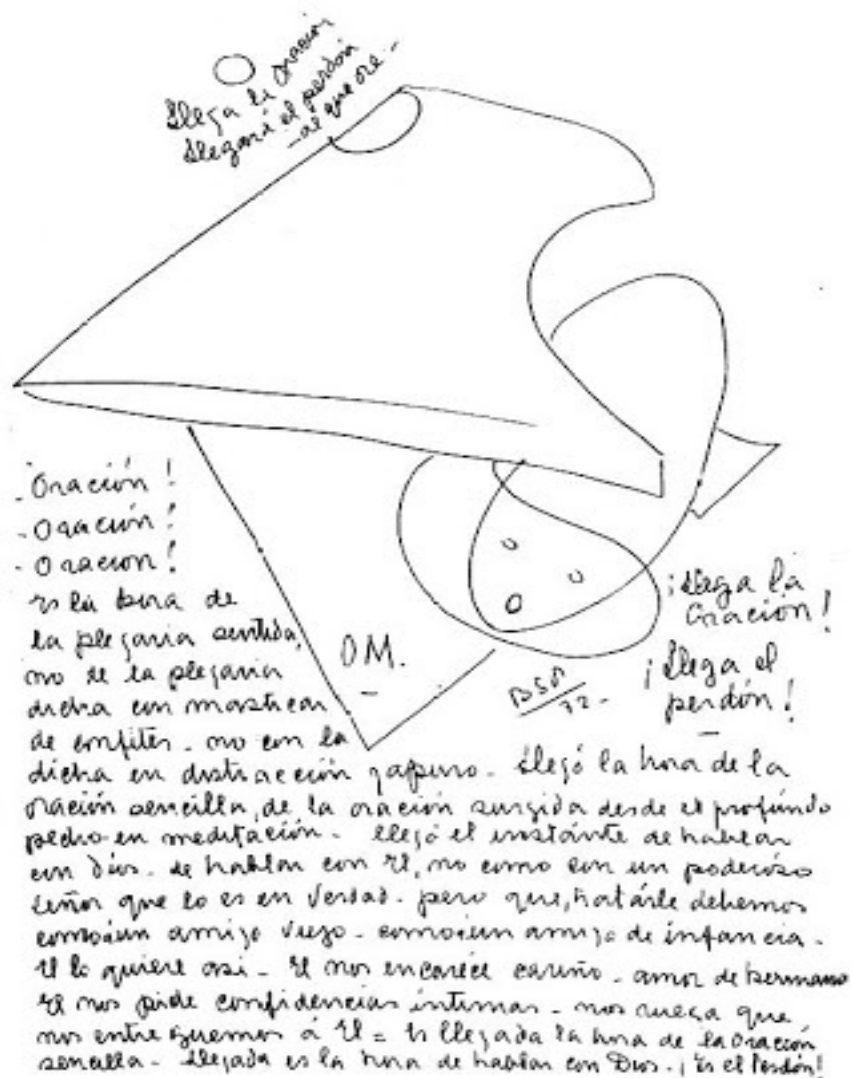 Llega la oración
Llegará el perdón
- al que ore -
- Oración!
- Oración!
- Oracion!
Es la hora de
la plegaria sentida,
no de la plegaria
dicha con masticar
de confites - no con la
dicha en distracción y apuro - Llegó la hora de la
oración sencilla, de la oración surgida desde el profundo
pecho en meditación - llegó el instante de hablar
con Dios - de hablar con El, no como con un poderoso
señor que lo es en verdad - pero que, tratarle debemos
como a un amigo viejo - como a un amigo de infancia -
El lo quiere asi - El nos encarece cariño - amor de hermano
El nos pide confidencias intimas - nos ruega que
nos entreguemos a El = Es llegada la hora de la oración
sencilla - Llegada es la hora de hablar con Dios - ¡Es el Perdón!
OM.
BSP
72 -
¡Llega la
Oración!
¡Llega el
perdón!